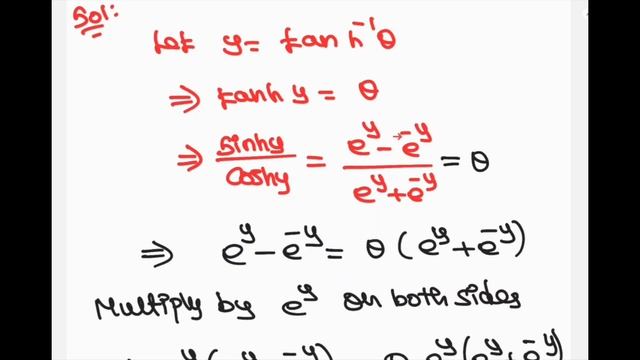 Sol:
Let y = tanh⁻¹θ
⇒ tanh y = θ
⇒ sinhy/coshy = (e^y - e^-y)/(e^y + e^-y) = θ
⇒ e^y - e^-y = θ (e^y + e^-y)
Multiply by e^y on both sides